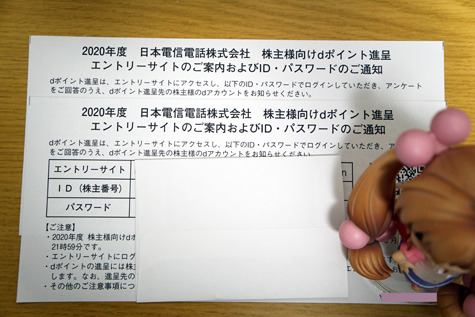 2020年度 日本電信電話株式会社 株主様向けdポイント進呈
エントリーサイトのご案内およびID・パスワードのご通知
dポイント進呈は、エントリーサイトにアクセスし、以下のID・パスワードでログインしていただき、アンケート
をご回答のうえ、dポイント進呈先の株主様のdアカウントをお知らせください。
2020年度 日本電信電話株式会社 株主様向けdポイント進呈
エントリーサイトのご案内およびID・パスワードのご通知
dポイント進呈は、エントリーサイトにアクセスし、以下のID・パスワードでログインしていただき、アンケート
をご回答のうえ、dポイント進呈先の株主様のdアカウントをお知らせください
エントリーサイト
ID（株主番号）
パスワード
【ご注意】
・2020年度 株主様向けdポ
21時59分です。
・エントリーサイトにログ
・dポイントの進呈には株主
します。なお、進呈先の
・その他のご注意事項につ